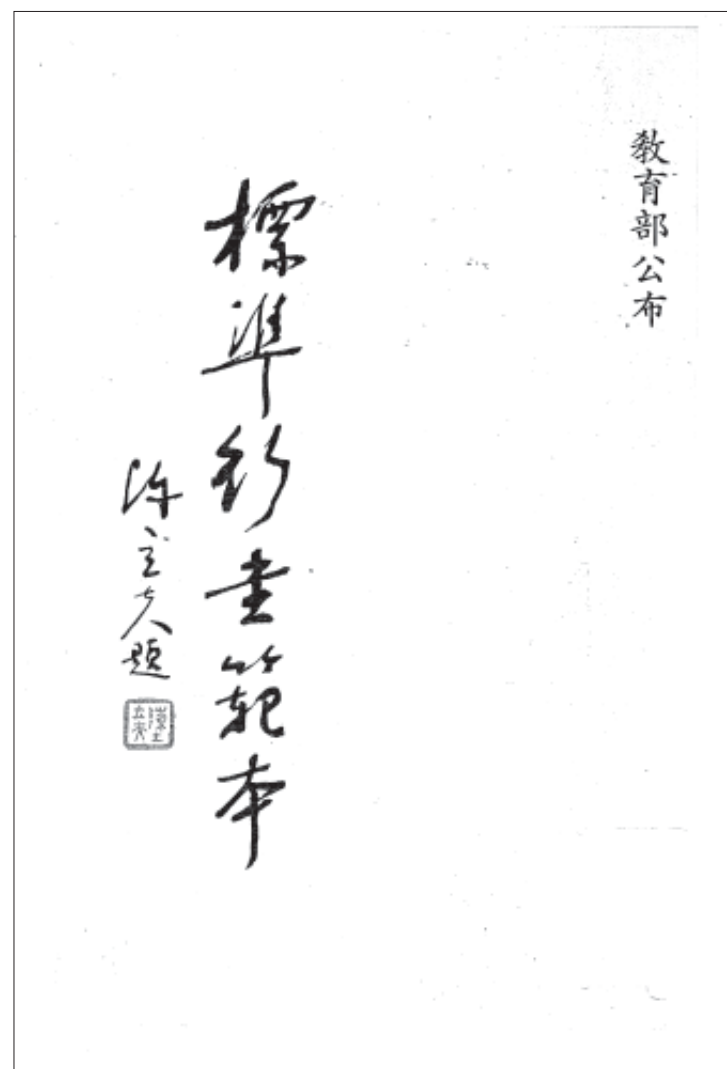 教育部公布
標準行書範本
陳立夫題